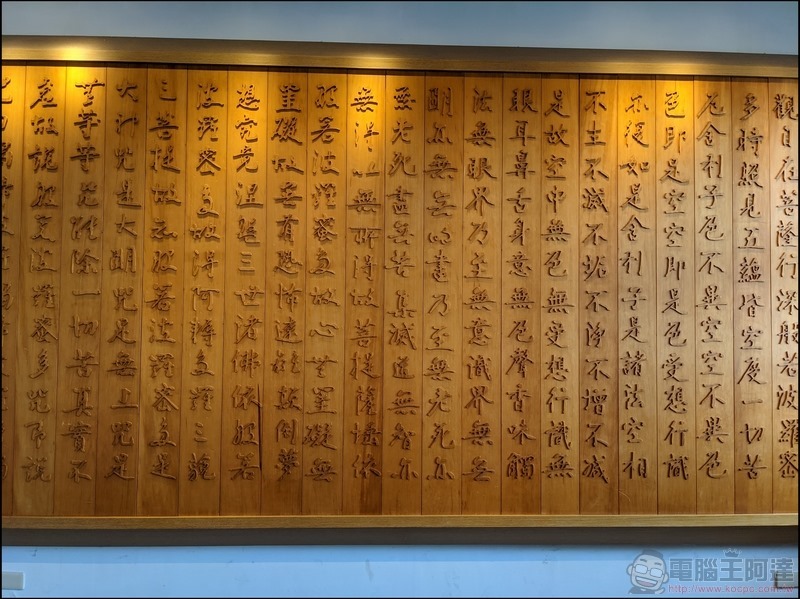 觀自在菩薩行深般若波羅蜜
多時照見五蘊皆空度一切苦
厄舍利子色不異空空不異色
色即是空空即是色受想行識
亦復如是舍利子是諸法空相
不生不滅不垢不淨不增不減
是故空中無色無受想行識無
眼耳鼻舌身意無色聲香味觸
法無眼界乃至無意識界無无
明亦無無明盡乃至無老死亦
無老死盡無苦集滅道無智亦
無得以無所得故菩提薩埵依
般若波羅蜜多故心無罣礙無
罣礙故無有恐怖遠離顛倒夢
想究竟涅槃三世諸佛依般若
波羅蜜多故得阿耨多羅三藐
三菩提故知般若波羅蜜多是
大神咒是大明咒是無上咒是
無等等咒能除一切苦真實不
虛故說般若波羅蜜多咒即說
電腦王阿達
http://www.kocpc.com.tw